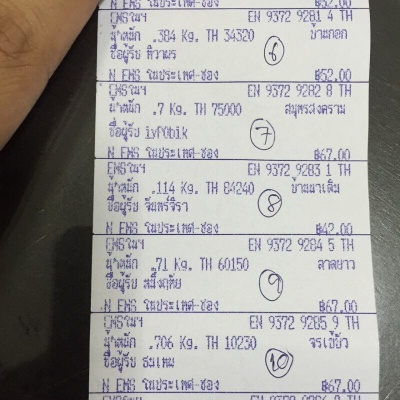 N EMS ในประเทศ-ซอง ฿52.00
EMSในฯ EN 9372 9281 4 TH
น้ำหนัก .384 Kg. TH 34320 บ้านกอก
ชื่อผู้รับ ทิวาพร
6
N EMS ในประเทศ-ซอง ฿52.00
EMSในฯ EN 9372 9282 8 TH
น้ำหนัก .7 Kg. TH 75000 สมุทรสงคราม
ชื่อผู้รับ ivPObik
7
N EMS ในประเทศ-ซอง ฿67.00
EMSในฯ EN 9372 9283 1 TH
น้ำหนัก .114 Kg. TH 84240 บ้านนาเดิม
ชื่อผู้รับ จันทร์จิรา
8
N EMS ในประเทศ-ซอง ฿42.00
EMSในฯ EN 9372 9284 5 TH
น้ำหนัก .71 Kg. TH 60150 ลาดยาว
ชื่อผู้รับ หนึ่งฤทัย
9
N EMS ในประเทศ-ซอง ฿67.00
EMSในฯ EN 9372 9285 9 TH
น้ำหนัก .706 Kg. TH 10230 จรเข้บัว
ชื่อผู้รับ ธนเทพ
10
N EMS ในประเทศ-ซอง ฿67.00